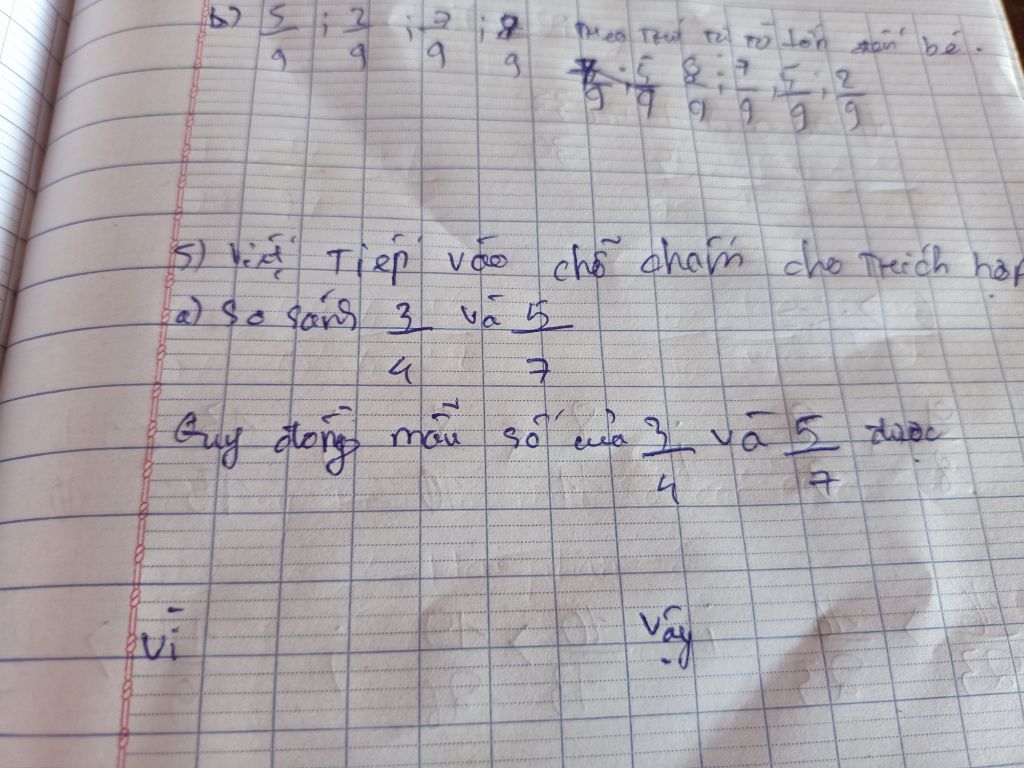 b) 5/9 ; 2/9 ; 7/9 ; 8/9 Theo thứ tự từ lớn đến bé.
8/9 ; 7/9 ; 5/9 ; 2/9
5) Viết Tiếp vào chỗ chấm cho thích hợp
a) So sánh 3/4 và 5/7
Quy đồng mẫu số của 3/4 và 5/7 được
Vì Vậy